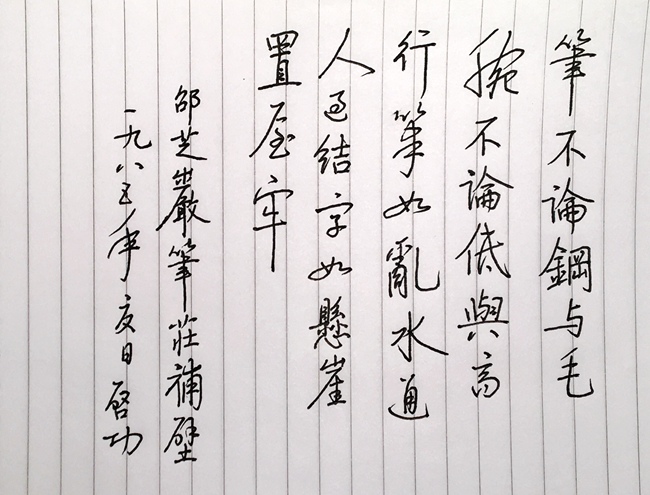 筆不論鋼与毛
腕不論低與高
行筆如亂水通
人過結字如懸崖
置屋牢
邵芝巖筆莊補壁
一九八五年夏日啓功